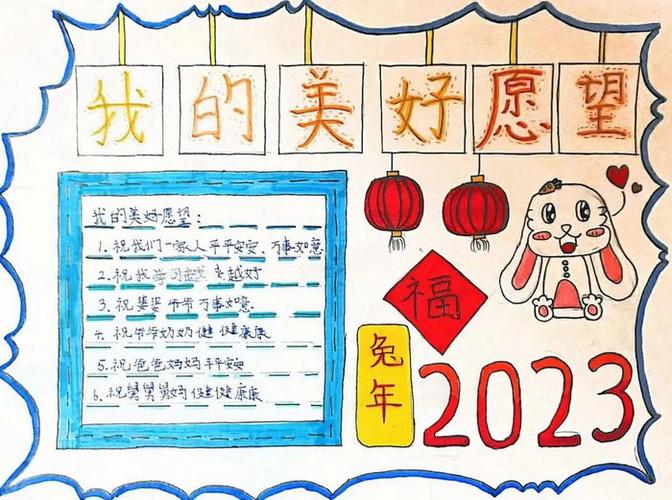 我的美好愿望
我的美好愿望：
1.祝我们一家人平平安安，万事如意
2.祝我学习越来越好
3.祝婆婆爷爷万事如意.
4.祝爷爷奶奶健健康康
5.祝爸爸妈妈平平安安
6.祝舅舅舅妈健健康康
福
兔年
2023